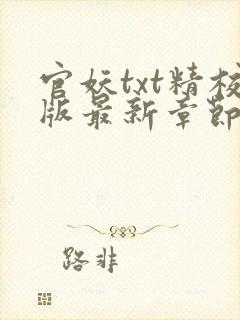 官妖txt精校
版最新章節
路非